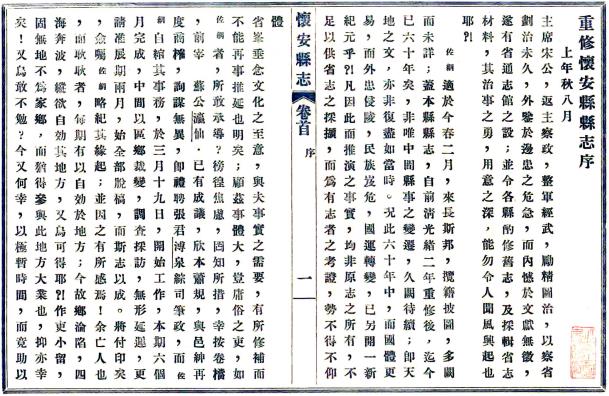 重修懷安縣縣志序
上年秋八月
主席宋公，返主察政，整軍經武，勵精圖治，以察省
劃治未久，外鑒於邊患之危急，而內憾於文獻無徵，
遂有省通志館之設；並令各縣酌修舊志，及採輯省志
材料，其治事之勇，用意之深，能勿令人聞風興起也
耶?!
佐綱適於今春二月，來長斯邦，瀏籍披圖，多闕
而未詳；蓋本縣縣志，自前清光緒二年重修後，迄今
已六十年矣，非唯中間縣事之變遷，久闕待續；即天
地之文，亦非復盡如當時。況此六十年中，而國體更
易，而外患侵陵，民族岌危，國運轉變，已另開一新
紀元乎?!凡因此而推演之事實，均非原志之所有，不
足以供省志之採擷，而為有志者之考證，勢不得不仰
懷安縣志
卷首
序
一
體
省峯垂念文化之至意，與夫事實之需要，有所修補而
不能再事推延也明矣；顧茲事體大，豈庸俗之吏，如
佐綱者，所敢承導？徬徨焦慮，罔知所措，幸按卷檔
，前宰 蘇公瀛仙，已有成議，欣本蕭規，與邑紳再
度商榷，詢謀無異，卽禮聘張君溥泉綜司筆政，而佐
綱自綰其事務，於三月十九日，開始工作，本期六個
月完成，中間以區鄉裁變，調查採訪，無形延遲，更
請准展期兩月，始全部脫稿，而斯志以成。將付印矣
，僉囑佐綱略紀其緣起；並因之有所感焉！余亡人也
，而耿耿者，每期有以自効於地方；今故鄉淪陷，四
海奔波，縱欲自効其地方，又烏可得耶?!作吏小留，
固無地不為家鄉，而猶得參與此地方大業也，抑亦幸
矣！又烏敢不勉？今又何幸，以極暫時間，而竟助以